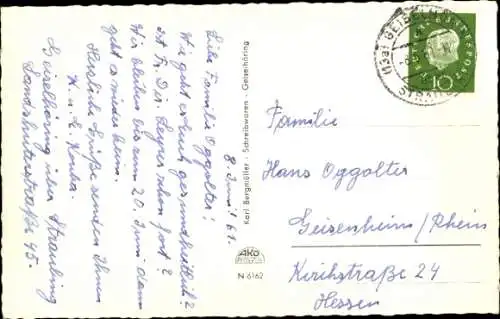 8. Juni 61.
Liebe Familie Oggolter!
Wie geht es Euch gesundheitlich?
Ist Fr. Dir. Geyer schon fort?
Wir bleiben bis zum 20. Juni dann
geht es wieder heim.
Herzliche Grüße senden Ihnen
H. u. K.
Geiselhöring über Straubing
Landshuterstraße 45.
Karl Bergmüller - Schreibwaren - Geiselhöring
AKO
N 6162
(13a) GEISELH
STRAU
DEUTSCHE BUNDESPOST
10
Familie
Hans Oggolter
Geisenheim/Rhein
Kirchstraße 24
Hessen